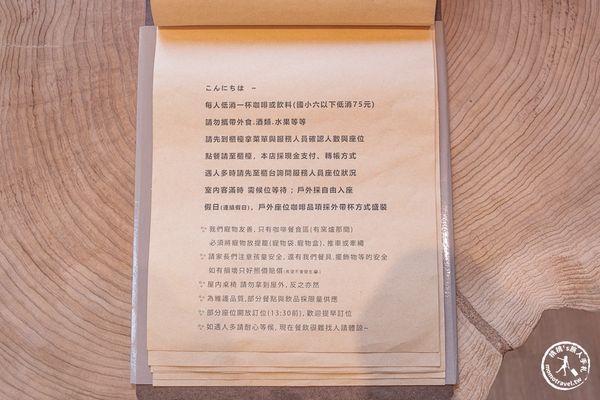 こんにちは ~
每人低消一杯咖啡或飲料(國小六以下低消75元)
請勿攜帶外食.酒類.水果等等
請先到櫃檯拿菜單與服務人員確認人數與座位
點餐請至櫃檯，本店採現金支付、轉帳方式
遇人多時請先至櫃台詢問服務人員座位狀況
室內客滿時 需候位等待；戶外採自由入座
假日(連續假日)，戶外座位咖啡品項採外帶杯方式盛裝
我們寵物友善，只有咖啡餐食區(有窯爐那間)
必須將寵物放提籠(寵物袋.寵物盒)，推車或牽繩
請家長們注意孩童安全，還有我們餐具.擺飾物等的安全
如有損壞只好照價賠償(希望不會發生)
屋內桌椅 請勿拿到屋外，反之亦然
為維護品質，部分餐點與飲品採限量供應
部分座位開放訂位(13:30前)，歡迎提早訂位
如遇人多請耐心等候，現在餐飲很難找人請體諒~
桃桃's旅人手札
momotravel.tw